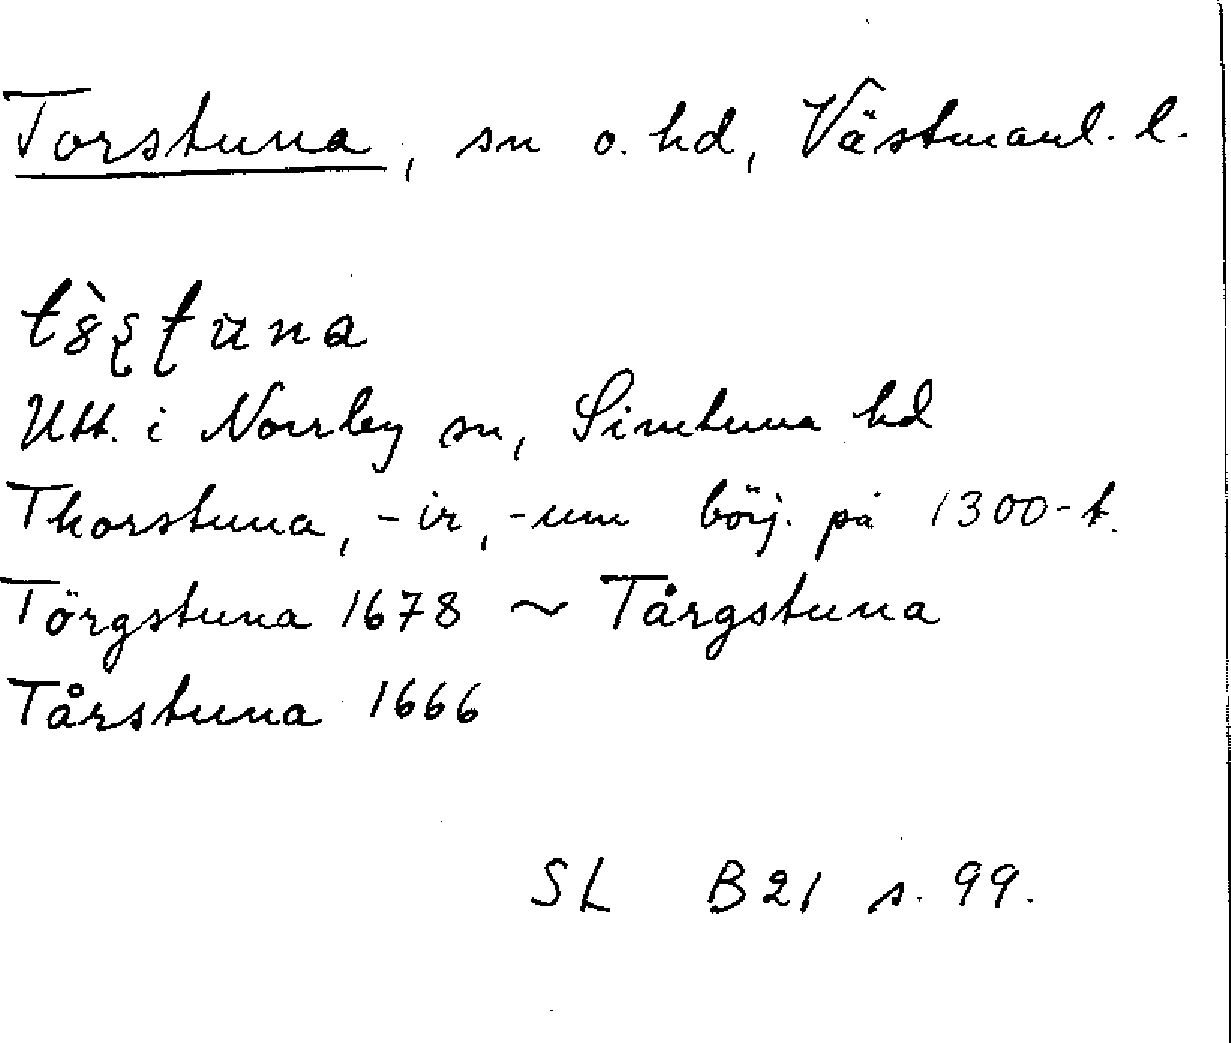 Torstuna, sn o. hd, Västmanl. l.
tȣ̀ʂʈüna
Utt. i Norrby sn, Simtuna hd
Thorstuna, -ir, -um börj. på 1300-t.
Törgstuna 1678 ~ Tårgstuna
Tårstuna 1666
SL B21 s. 99.